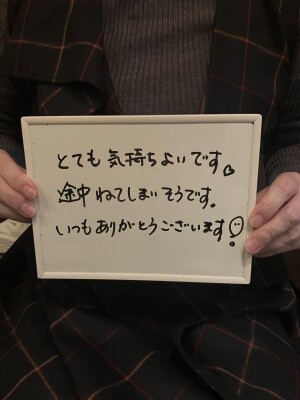 とても気持ちよいです。
途中ねてしまいそうです。
いつもありがとうございます!